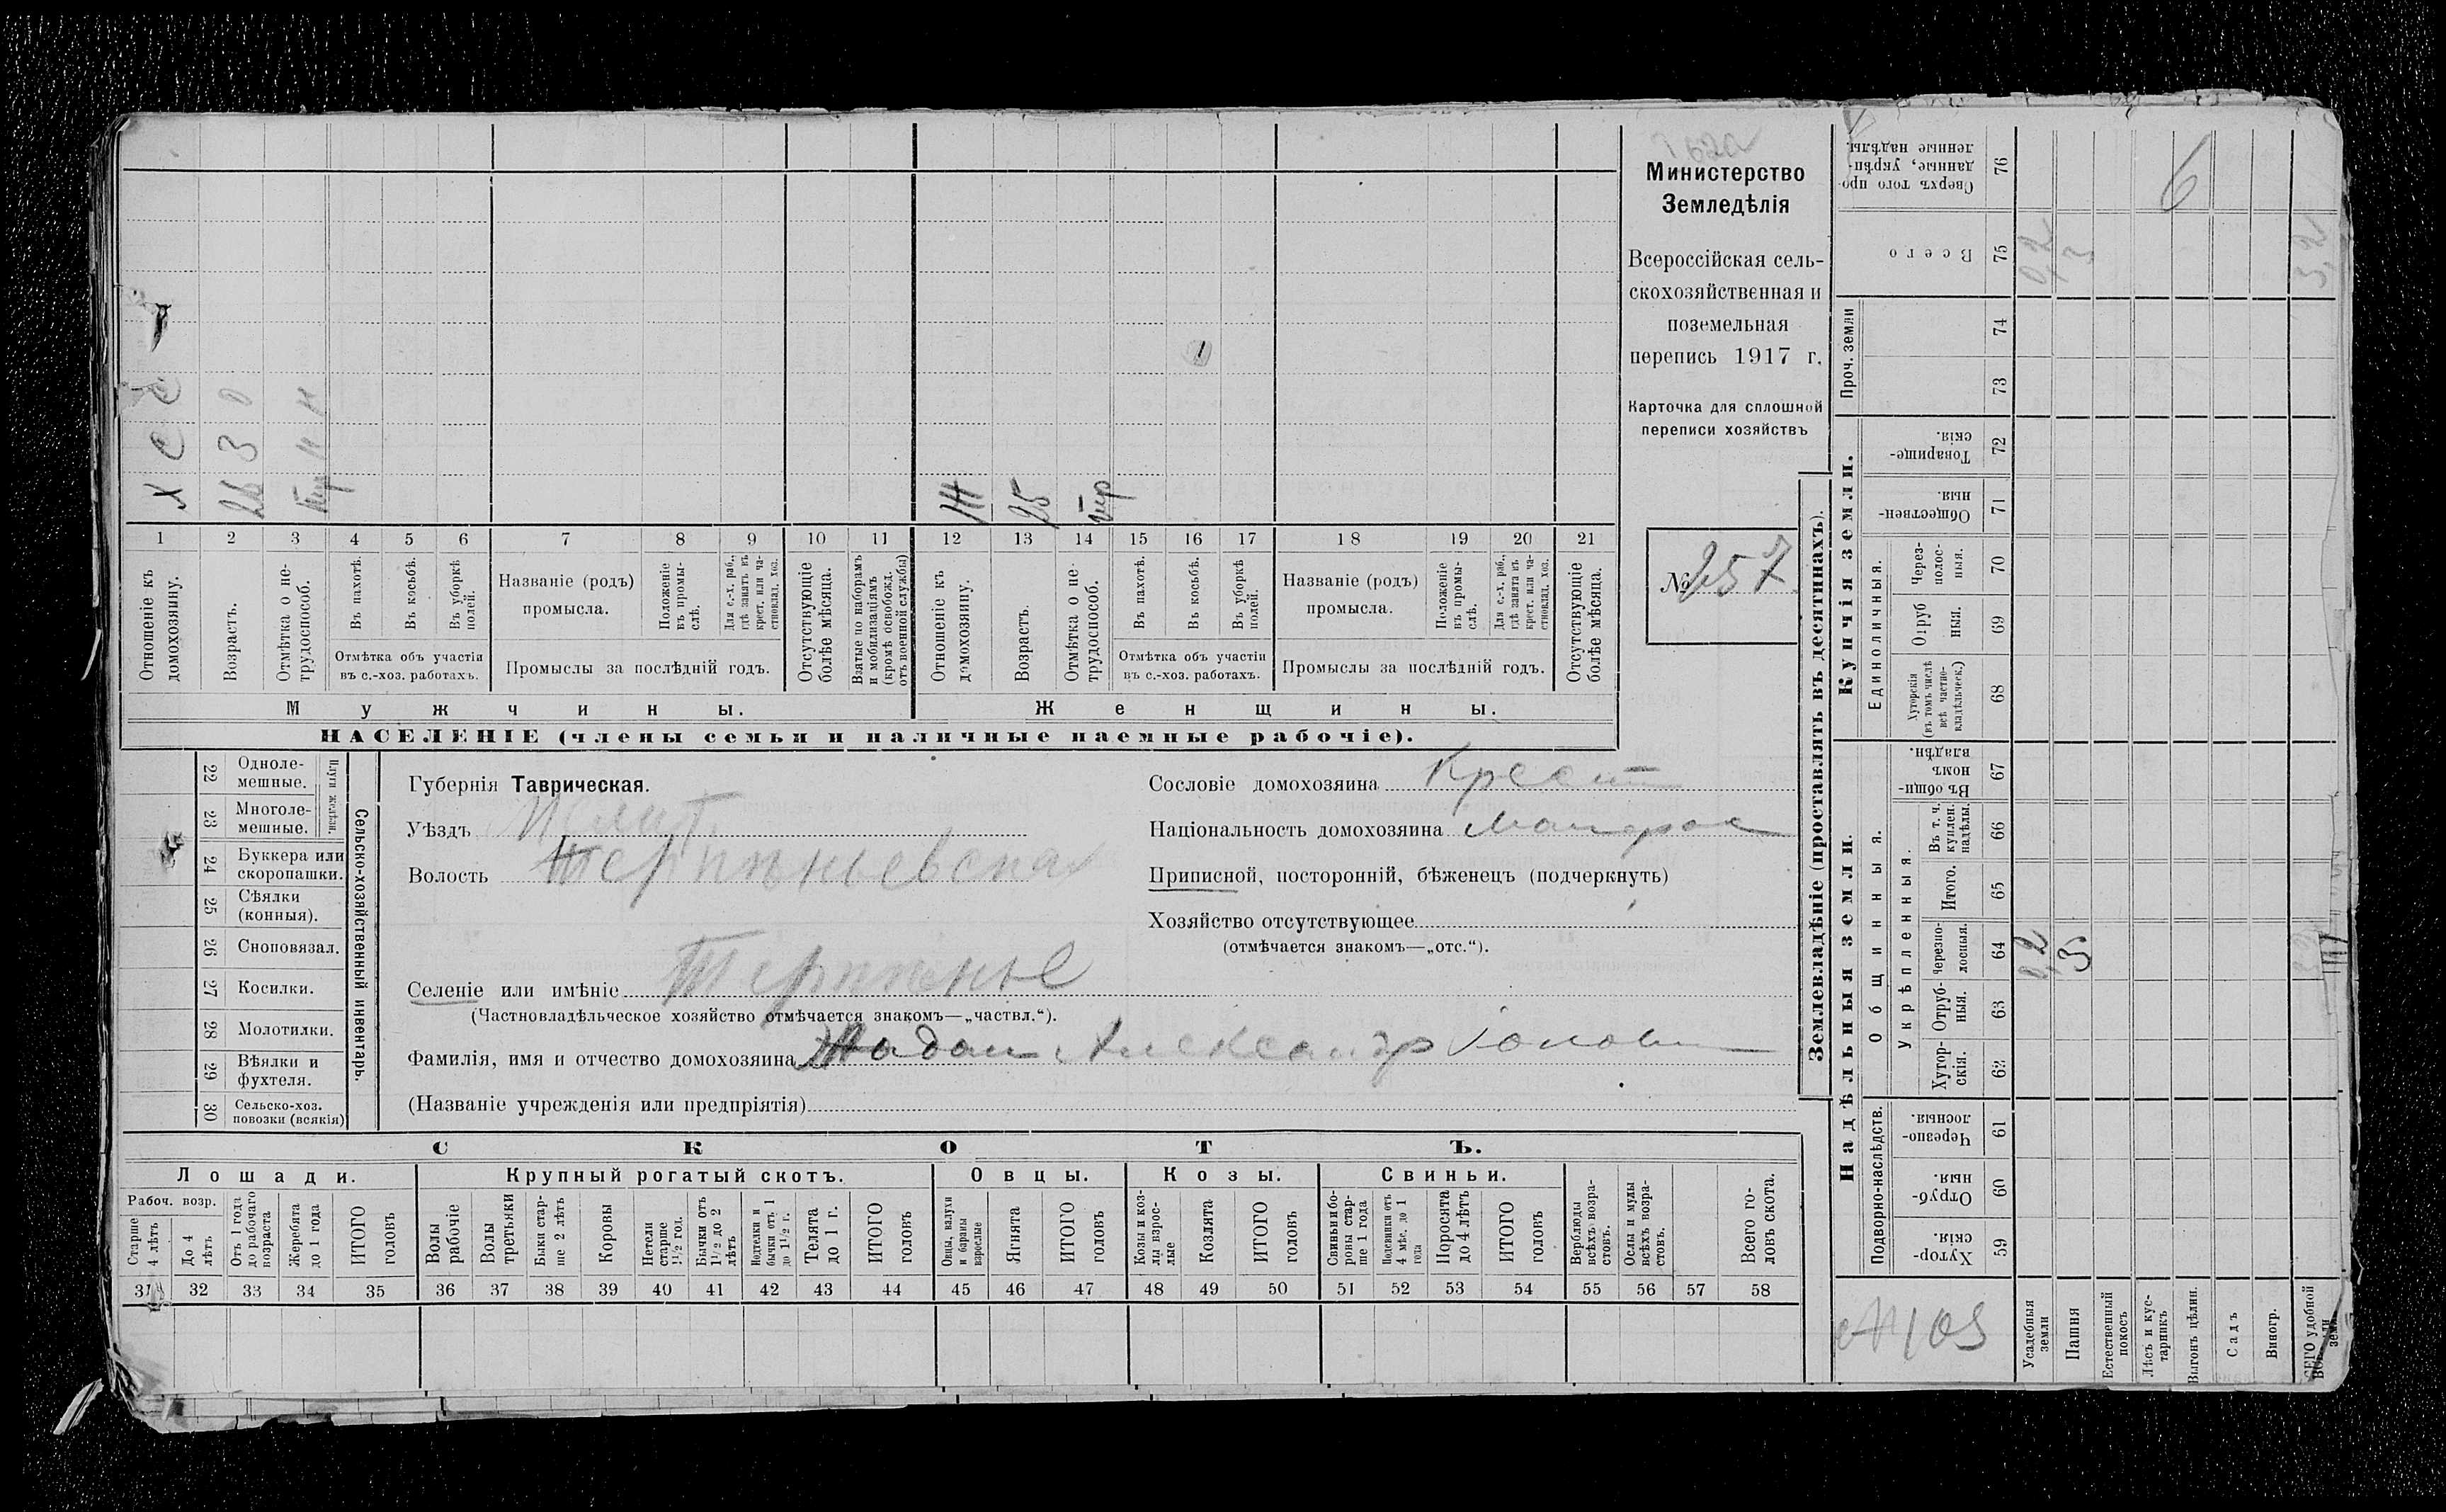 Министерство
Земледѣлія
Всероссійская сель-
скохозяйственная и
поземельная
перепись 1917 г.
Карточка для сплошной
переписи хозяйствъ
№ 257
Х С С
26 3 0
25
1 2 3 4 5 6 7 8 9 10 11 12 13 14 15 16 17 18 19 20 21
Отношеніе къ домохозяину.
Возрастъ.
Отмѣтка о не-трудоспособ.
Въ пахотѣ.
Въ косьбѣ.
Въ уборкѣ полей.
Отмѣтка объ участіи
въ с.-хоз. работахъ.
Названіе (родъ)
промысла.
Положеніе въ промы-слѣ.
Для с.-х. раб., гдѣ занятъ въ крест. или ча-стновлад. хоз.
Промыслы за послѣдній годъ.
Отсутствующіе болѣе мѣсяца.
Взятые по наборамъ и мобилизаціямъ (кромѣ освобожд. отъ военной службы)
Отношеніе къ домохозяину.
Возрастъ.
Отмѣтка о не-трудоспособ.
Въ пахотѣ.
Въ косьбѣ.
Въ уборкѣ полей.
Отмѣтка объ участіи
въ с.-хоз. работахъ.
Названіе (родъ)
промысла.
Положеніе въ промы-слѣ.
Для с.-х. раб., гдѣ занята въ крест. или ча-стновлад. хоз.
Промыслы за послѣдній годъ.
Отсутствующіе болѣе мѣсяца.
Мужчины.
Женщины.
НАСЕЛЕНІЕ (члены семьи и наличные наемные рабочіе).
22 Одноле-мешные.
23 Многоле-мешные.
Плуги желѣзн.
24 Буккера или скоропашки.
25 Сѣялки (конныя).
26 Сноповязал.
27 Косилки.
28 Молотилки.
29 Вѣялки и фухтеля.
30 Сельско-хоз. повозки (всякія)
Сельско-хозяйственный инвентарь.
Губернія Таврическая.
Уѣздъ Мелит.
Волость Терпѣньевская
Селеніе или имѣніе Терпѣнье
(Частновладѣльческое хозяйство отмѣчается знакомъ—„частвл.“).
Фамилія, имя и отчество домохозяина Жадан Александр
(Названіе учрежденія или предпріятія)
Сословіе домохозяина Крест
Національность домохозяина Малорос
Приписной, посторонній, бѣженецъ (подчеркнуть)
Хозяйство отсутствующее
(отмѣчается знакомъ—„отс.“).
СКОТЪ.
Лошади.
Крупный рогатый скотъ.
Овцы.
Козы.
Свиньи.
Рабоч. возр.
Старше 4 лѣтъ
До 4 лѣтъ
Отъ 1 года до рабочаго возраста
Жеребята до 1 года
ИТОГО головъ
Волы рабочіе
Волы третьяки
Быки стар-ше 2 лѣтъ
Коровы
Нетели старше 1½ год.
Бычки отъ 1½ до 2 лѣтъ
Подтелки и бычки отъ 1 до 1½ г.
Телята до 1 г.
ИТОГО головъ
Овцы, валухи и бараны взрослые
Ягнята
ИТОГО головъ
Козы и коз-лы взрос-лые
Козлята
ИТОГО головъ
Свиньи и бо-ровы стар-ше 1 года
Подсвинки отъ 4 мѣс. до 1 года
Поросята до 4 лѣтъ
ИТОГО головъ
Верблюды всѣхъ возра-стовъ.
Ослы и мулы всѣхъ возра-стовъ.
Всего го-ловъ скота.
31 32 33 34 35 36 37 38 39 40 41 42 43 44 45 46 47 48 49 50 51 52 53 54 55 56 57 58
Землевладѣніе (проставлять въ десятинахъ).
Надѣльныя земли.
Купчія земли.
Проч. земли
Сверхъ того про-данные, укрѣп-ленные надѣлы.
76
6
Всего
75
0,2
3
3,2
74
73
Товарище-скія.
72
Обществен-ныя.
71
Единоличныя.
Через-полос-ныя.
70
Отруб ныя.
69
Хуторскія (въ томъ числѣ всѣ частно-владѣльческ.)
68
Въ общи-номъ владѣн.
67
Общинныя.
Укрѣпленныя.
Въ т. ч. куплен. надѣлы.
66
Итого.
65
Черезпо-лосныя.
64
0,2
3
Отруб-ныя.
63
Хутор-скія.
62
Подворно-наслѣдств.
Черезпо-лосныя.
61
Отруб-ныя.
60
Хутор-скія.
59
№ 103
Усадебныя земли
Пашня
Естественный покосъ
Лѣсъ и кус-тарникъ
Выгонъ цѣлин.
Садъ
Виногр.